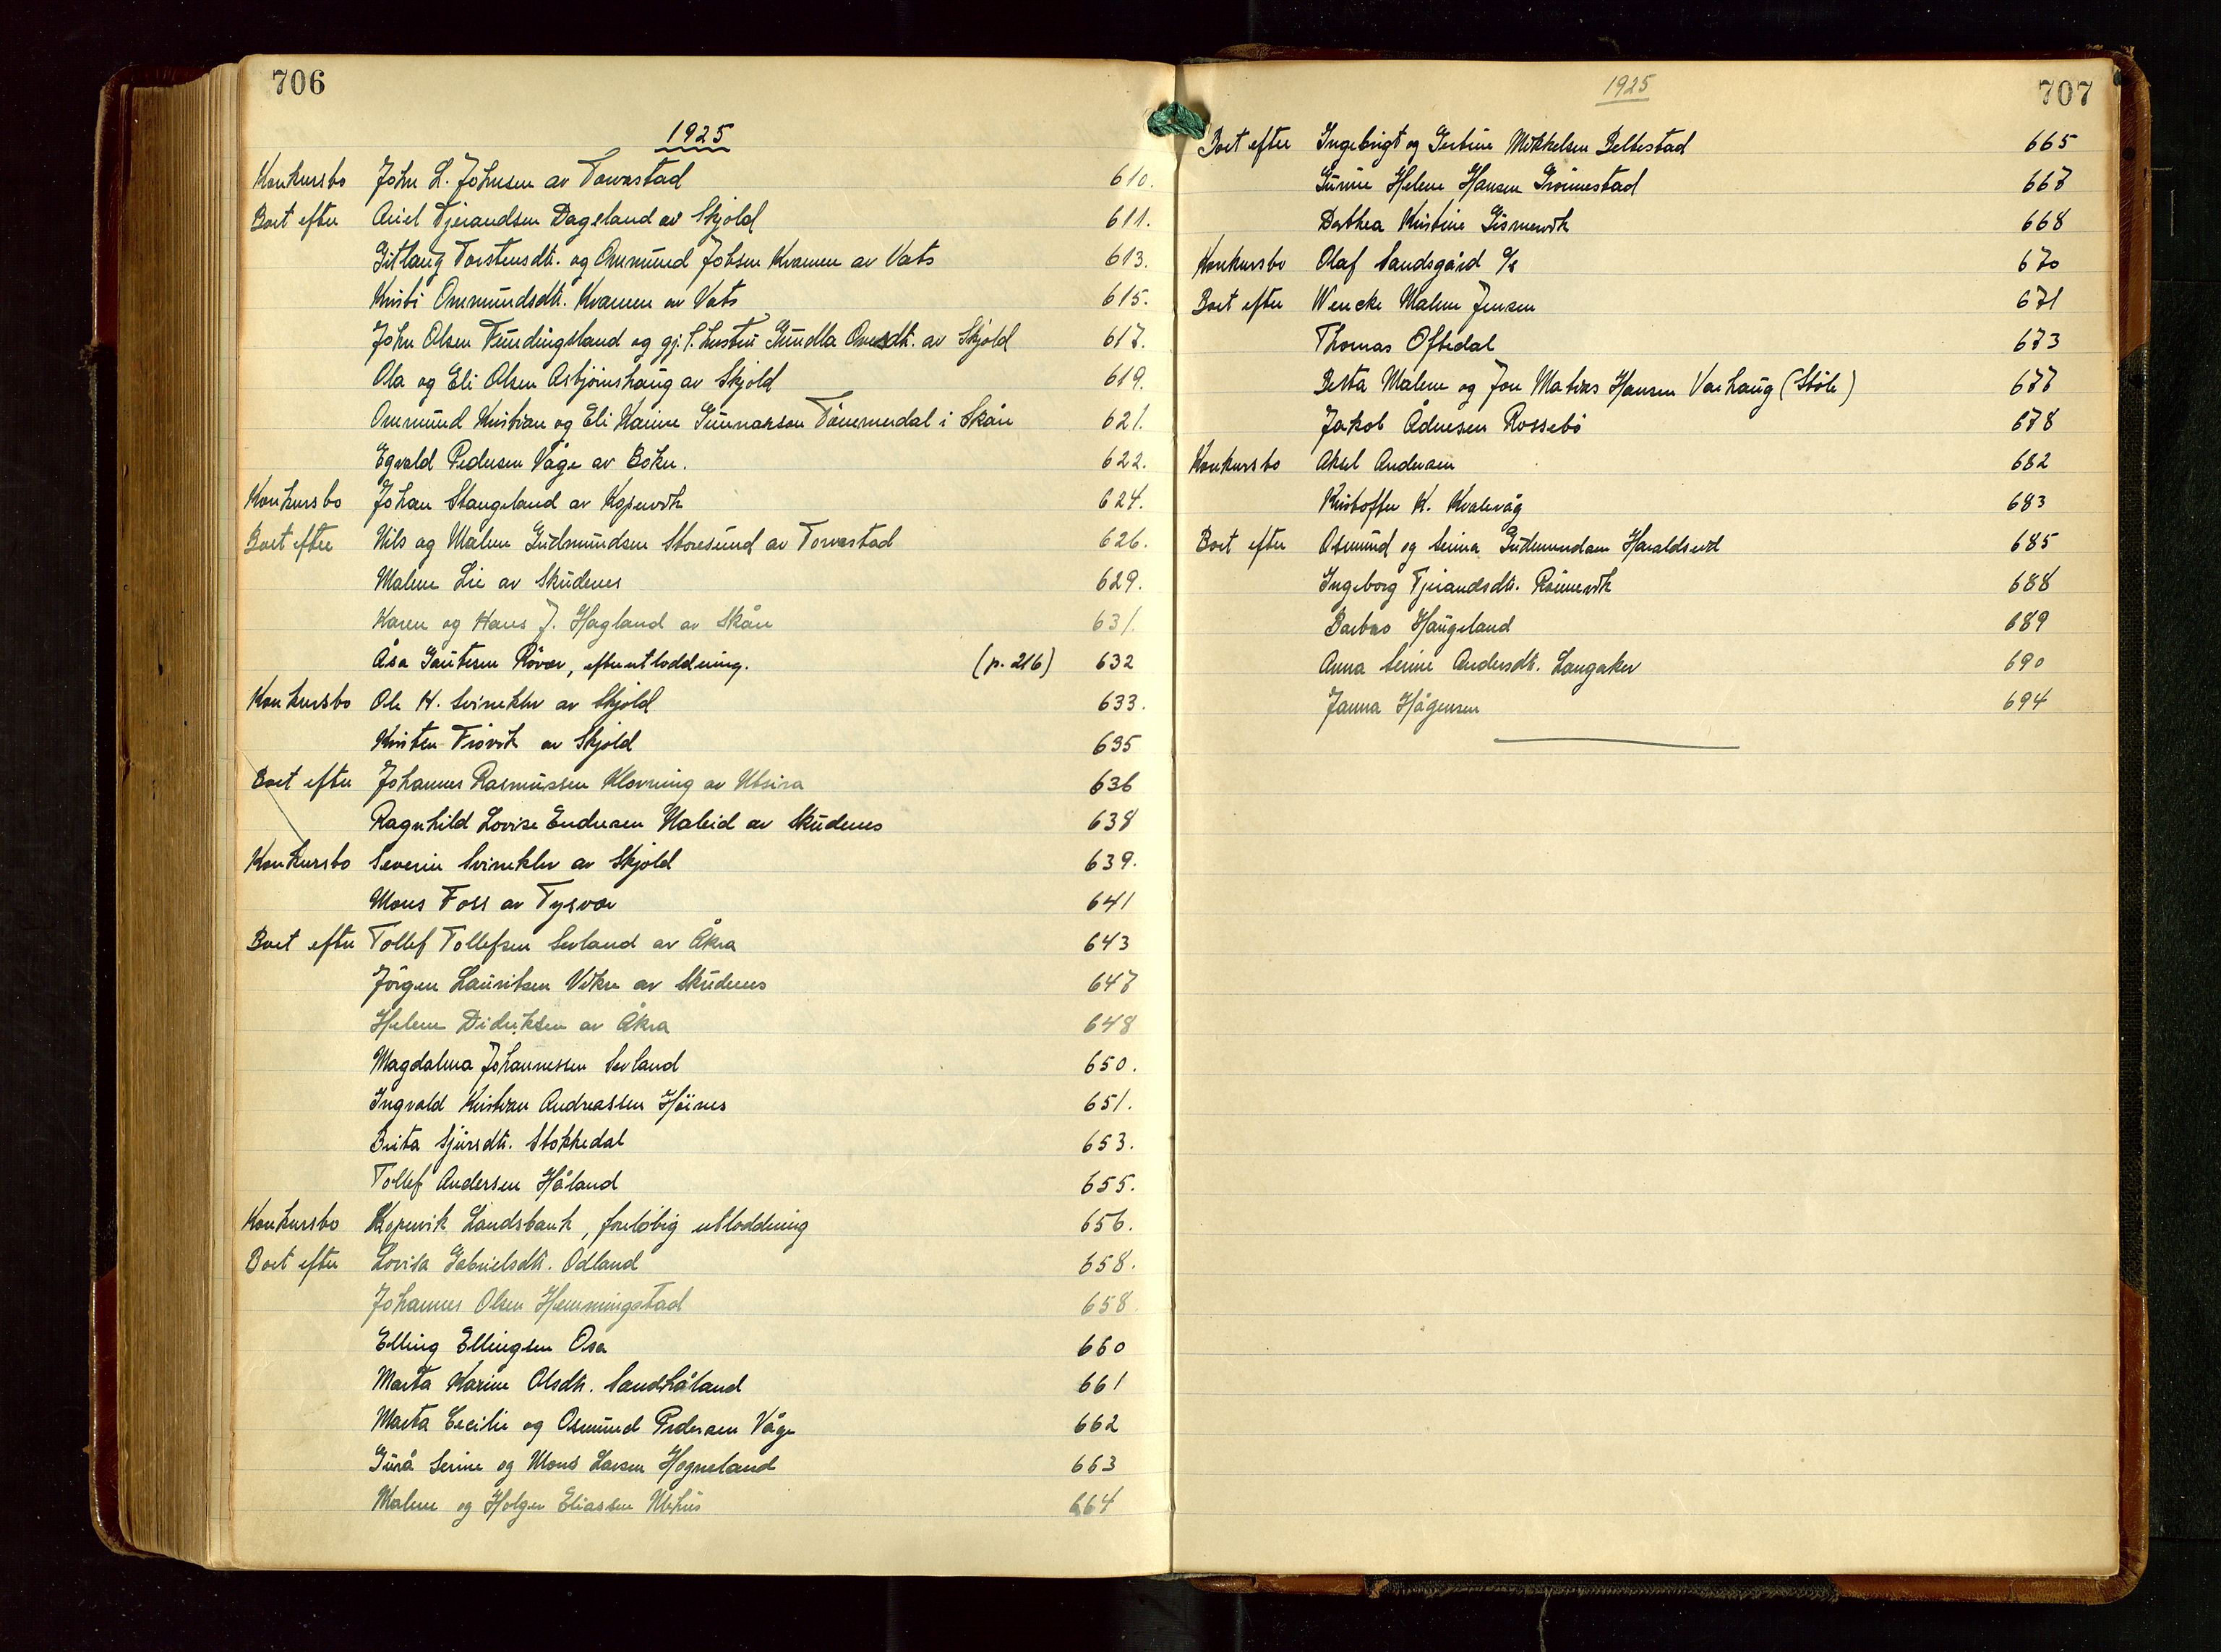 706
1925
Konkursbo John L. Johnsen av Torvastad 610.
Boet efter Axel Tjerandsen Dageland av Skjold 611.
Gitlaug Torstensdtr. og Ommund Jobsen Kvamen av Vats 613.
Kristi Ommundsdtr. Kvamen av Vats 615.
John Olsen Fundingsland og gj. l. hustru Gundla Ovesdtr. av Skjold 617.
Ola og Eli Olsen Asbjørnshaug av Skjold 619.
Ommund Kristian og Eli Karine Gunnarson Tömmerdal i Skåre 621.
Egvald Pedersen Våge av Bokn. 622.
Konkursbo Johan Stangeland av Kopervik 624.
Boet efter Nils og Malene Gudmundsen Storesund av Torvastad 626.
Malene Lie av Skudenes 629.
Karen og Hans J. Hagland av Skåre 631.
Åsa Gautesen Rövær, efterutloddning. (p. 216) 632
Konkursbo Ole H. Svineklev av Skjold 633.
Kristen Frövik av Skjold 635
Boet efter Johannes Rasmussen Klovning av Utsira 636
Ragnhild Lovise Endresen Høleid av Skudenes 638
Konkursbo Severin Svineklev av Skjold 639.
Mons Foss av Tysvær 641
Boet efter Tollef Tollefsen Sevland av Åkra 643
Jörgen Lauritsen Vikre av Skudenes 647
Helene Didriksen av Åkra 648
Magdalena Johannessen Sevland 650.
Ingvald Kristian Andreassen Höines 651.
Brita Sjursdtr. Stokkedal 653.
Tollef Andersen Håland 655.
Konkursbo Kopervik Landsbank, foreløbig utloddning 656.
Boet efter Lovisa Gabrielsdtr. Odland 658.
Johannes Olsen Hemmingstad 658.
Elling Ellingsen Osa 660
Marta Karine Olsdtr. Sandhåland 661
Marta Cecilie og Osmund Pedersen Våge 662
Gurå Serine og Mons Larsen Hogneland 663
Malene og Holger Eliassen Mehus 664
1925
707
Boet efter Ingebrigt og Gertine Mikkelsen Beltestad 665
Gurine Helene Hansen Grönnestad 667
Dorthea Kristine Gismervik 668
Konkursbo Olaf Sandsgård 670
Boet efter Wencke Malene Jensen 671
Thomas Oftedal 673
Berta Malene og Jon Matias Hansen Varhaug (Stöle) 677
Jakob Ådnesen Rossebö 678
Konkursbo Aksel Andersen 682
Kristoffer K. Kvalevåg 683
Boet efter Osmund og Serina Gudmundsen Haraldseid 685
Ingeborg Tjerandsdtr. Rönnevik 688
Barbro Haugeland 689
Anna Serine Andersdtr. Langaker 690
Janna Hågensen 694